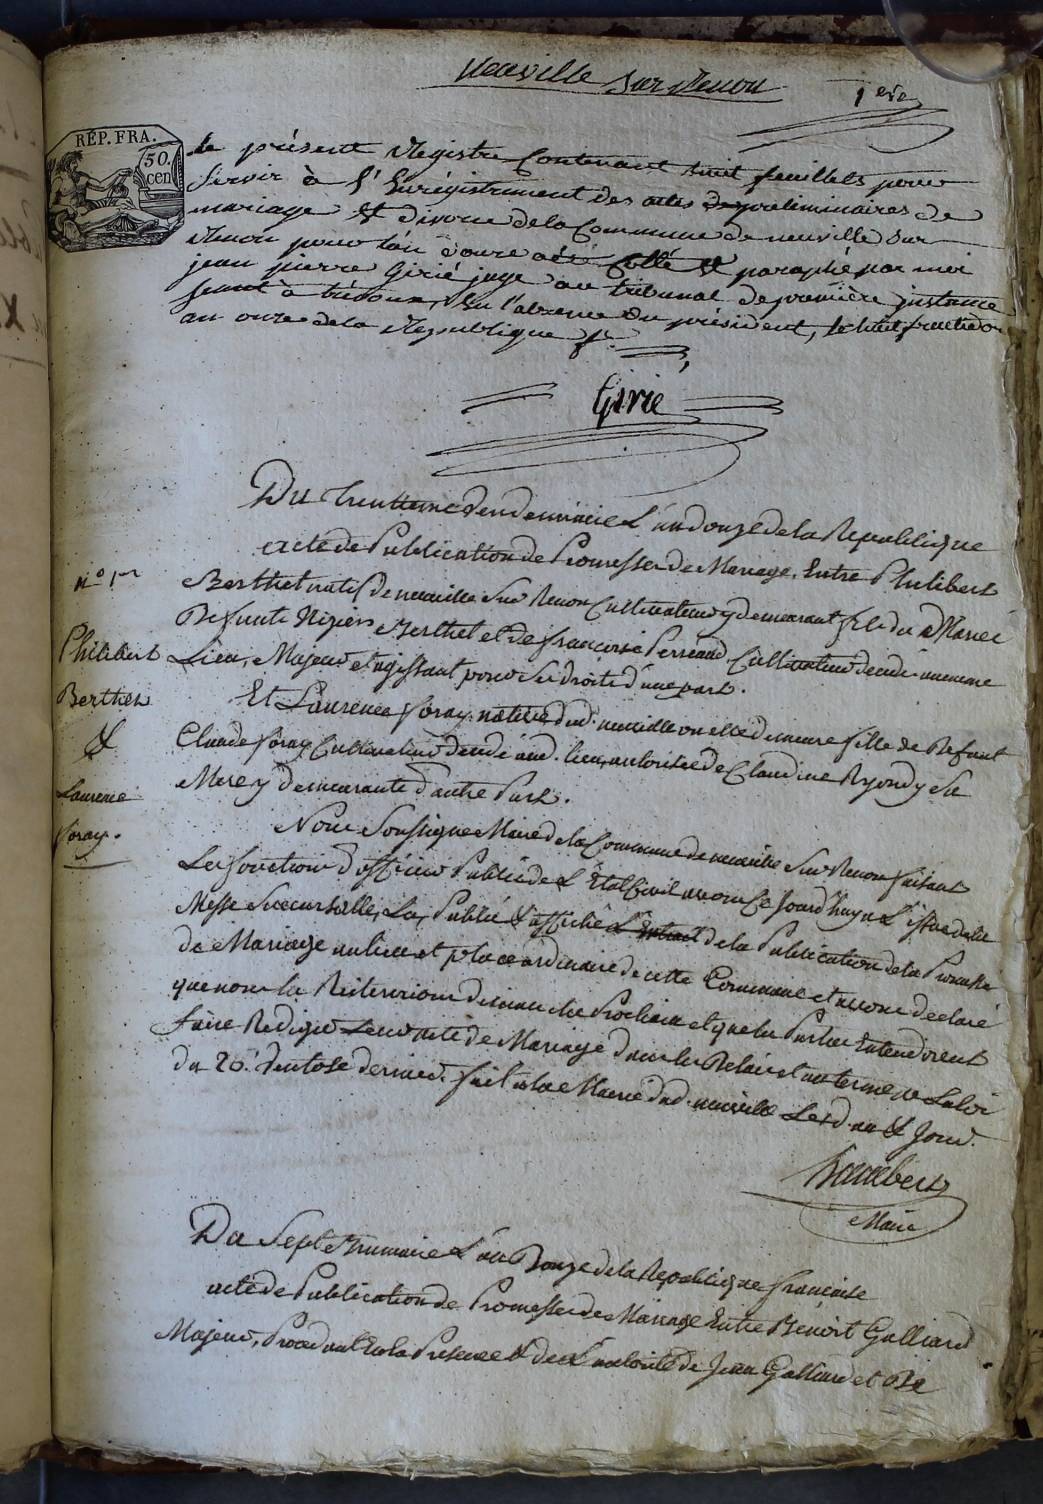 Neuville sur Renon
1ere
REP. FRA.
50.
cen
le présent Registre Contenant huit feuillets pour
servir à l'Enrégistrement des actes de preliminaires de
mariage et divorce de la Commune de neuville sur
Renon pour l'an douze a été Collé et paraphé par moi
jean pierre Girié juge au tribunal de première instance
seant à trévoux, en l'absence du président, le huit fructidor
an onze de la République f.
Girié
Du trentieme Vendemiaire L'an douze de la Republique
acte de Publication de Promesses de Mariage, Entre Philibert
Berthet natif de neuville sur Renon Cultivateur y demeurant fils du
Defunt Nizier Berthet et de françoise Perraud Cultivateur decede au meme
Lieu, Majeur et agissant pour ses droits d'une part.
Et Laurence foray native dud. neuville ou elle demeure fille de Defunt
Claude foray Cultivateur decede aud. lieu, autorisée de Claudine Ryondy sa
Mere y demeurante d'autre Part.
Nous Soussigne Maire de la Commune de neuville sur Renon faisant
Les fonctions d'officier Public de L'Etat Civil avons Ce jourd'huy a L'issue de la
Messe Succursalle, Lu, Publié & affiché L'Extrait de la Publication de la Promesse
de Mariage au lieu et place ordinaire de cette Commune et avons declaré
que nous la Reitererions dimanche Prochain et que les Parties Entendroient
faire Rediger Leur acte de Mariage dans les Delais et au terme de La loi
du 20. Ventose dernier. fait a la Mairie dud. neuville Les d. an & Jour.
Maire
N° 1er
Philibert
Berthet
&
Laurence
foray.
Du Sept Brumaire L'an Douze de la Republique francaise
acte de Publication de Promesses de Mariage Entre Benoit Galliard
Majeur, Procedant de la Presence & de L'autorité de Jean Galliard et De